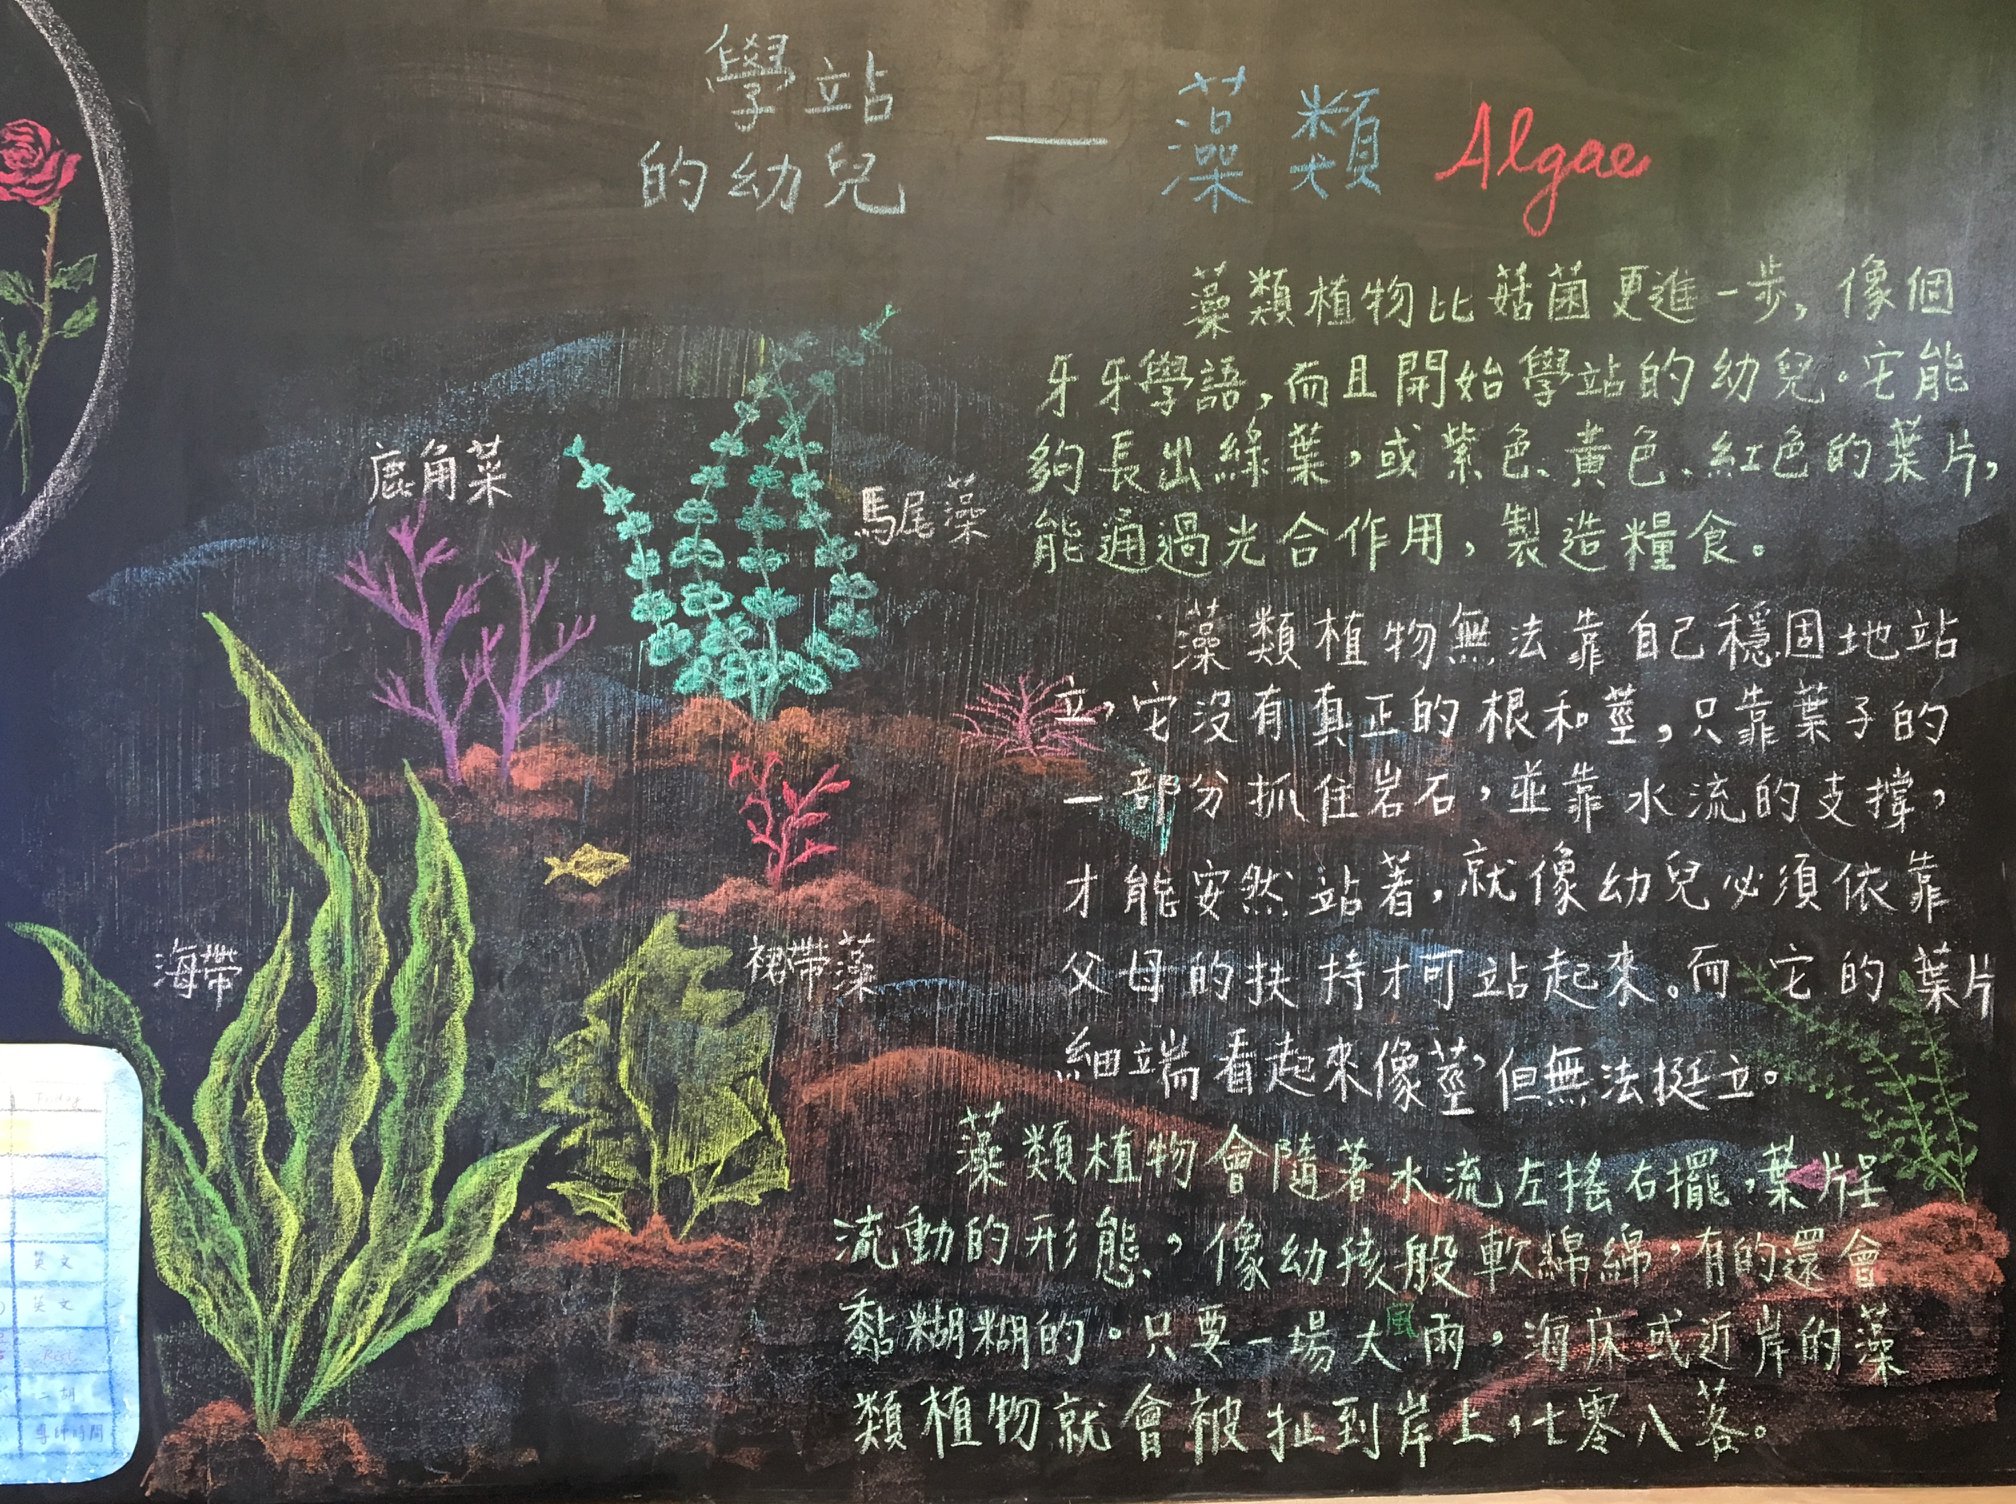 學站
的幼兒 — 藻類 Algae
藻類植物比菇菌更進一步，像個
牙牙學語，而且開始學站的幼兒。它能
夠長出綠葉，或紫色、黃色、紅色的葉片，
能通過光合作用，製造糧食。
藻類植物無法靠自己穩固地站
立，它沒有真正的根和莖，只靠葉子的
一部分抓住岩石，並靠水流的支撐，
才能安然站著，就像幼兒必須依靠
父母的扶持才可站起來。而它的葉片
細端看起來像莖，但無法挺立。
藻類植物會隨著水流左搖右擺，葉片呈
流動的形態，像幼孩般軟綿綿，有的還會
黏糊糊的。只要一場大風雨，海床或近岸的藻
類植物就會被扯到岸上，七零八落。
鹿角菜
馬尾藻
海帶
裙帶藻
Friday
英文
英文
Rest
二胡